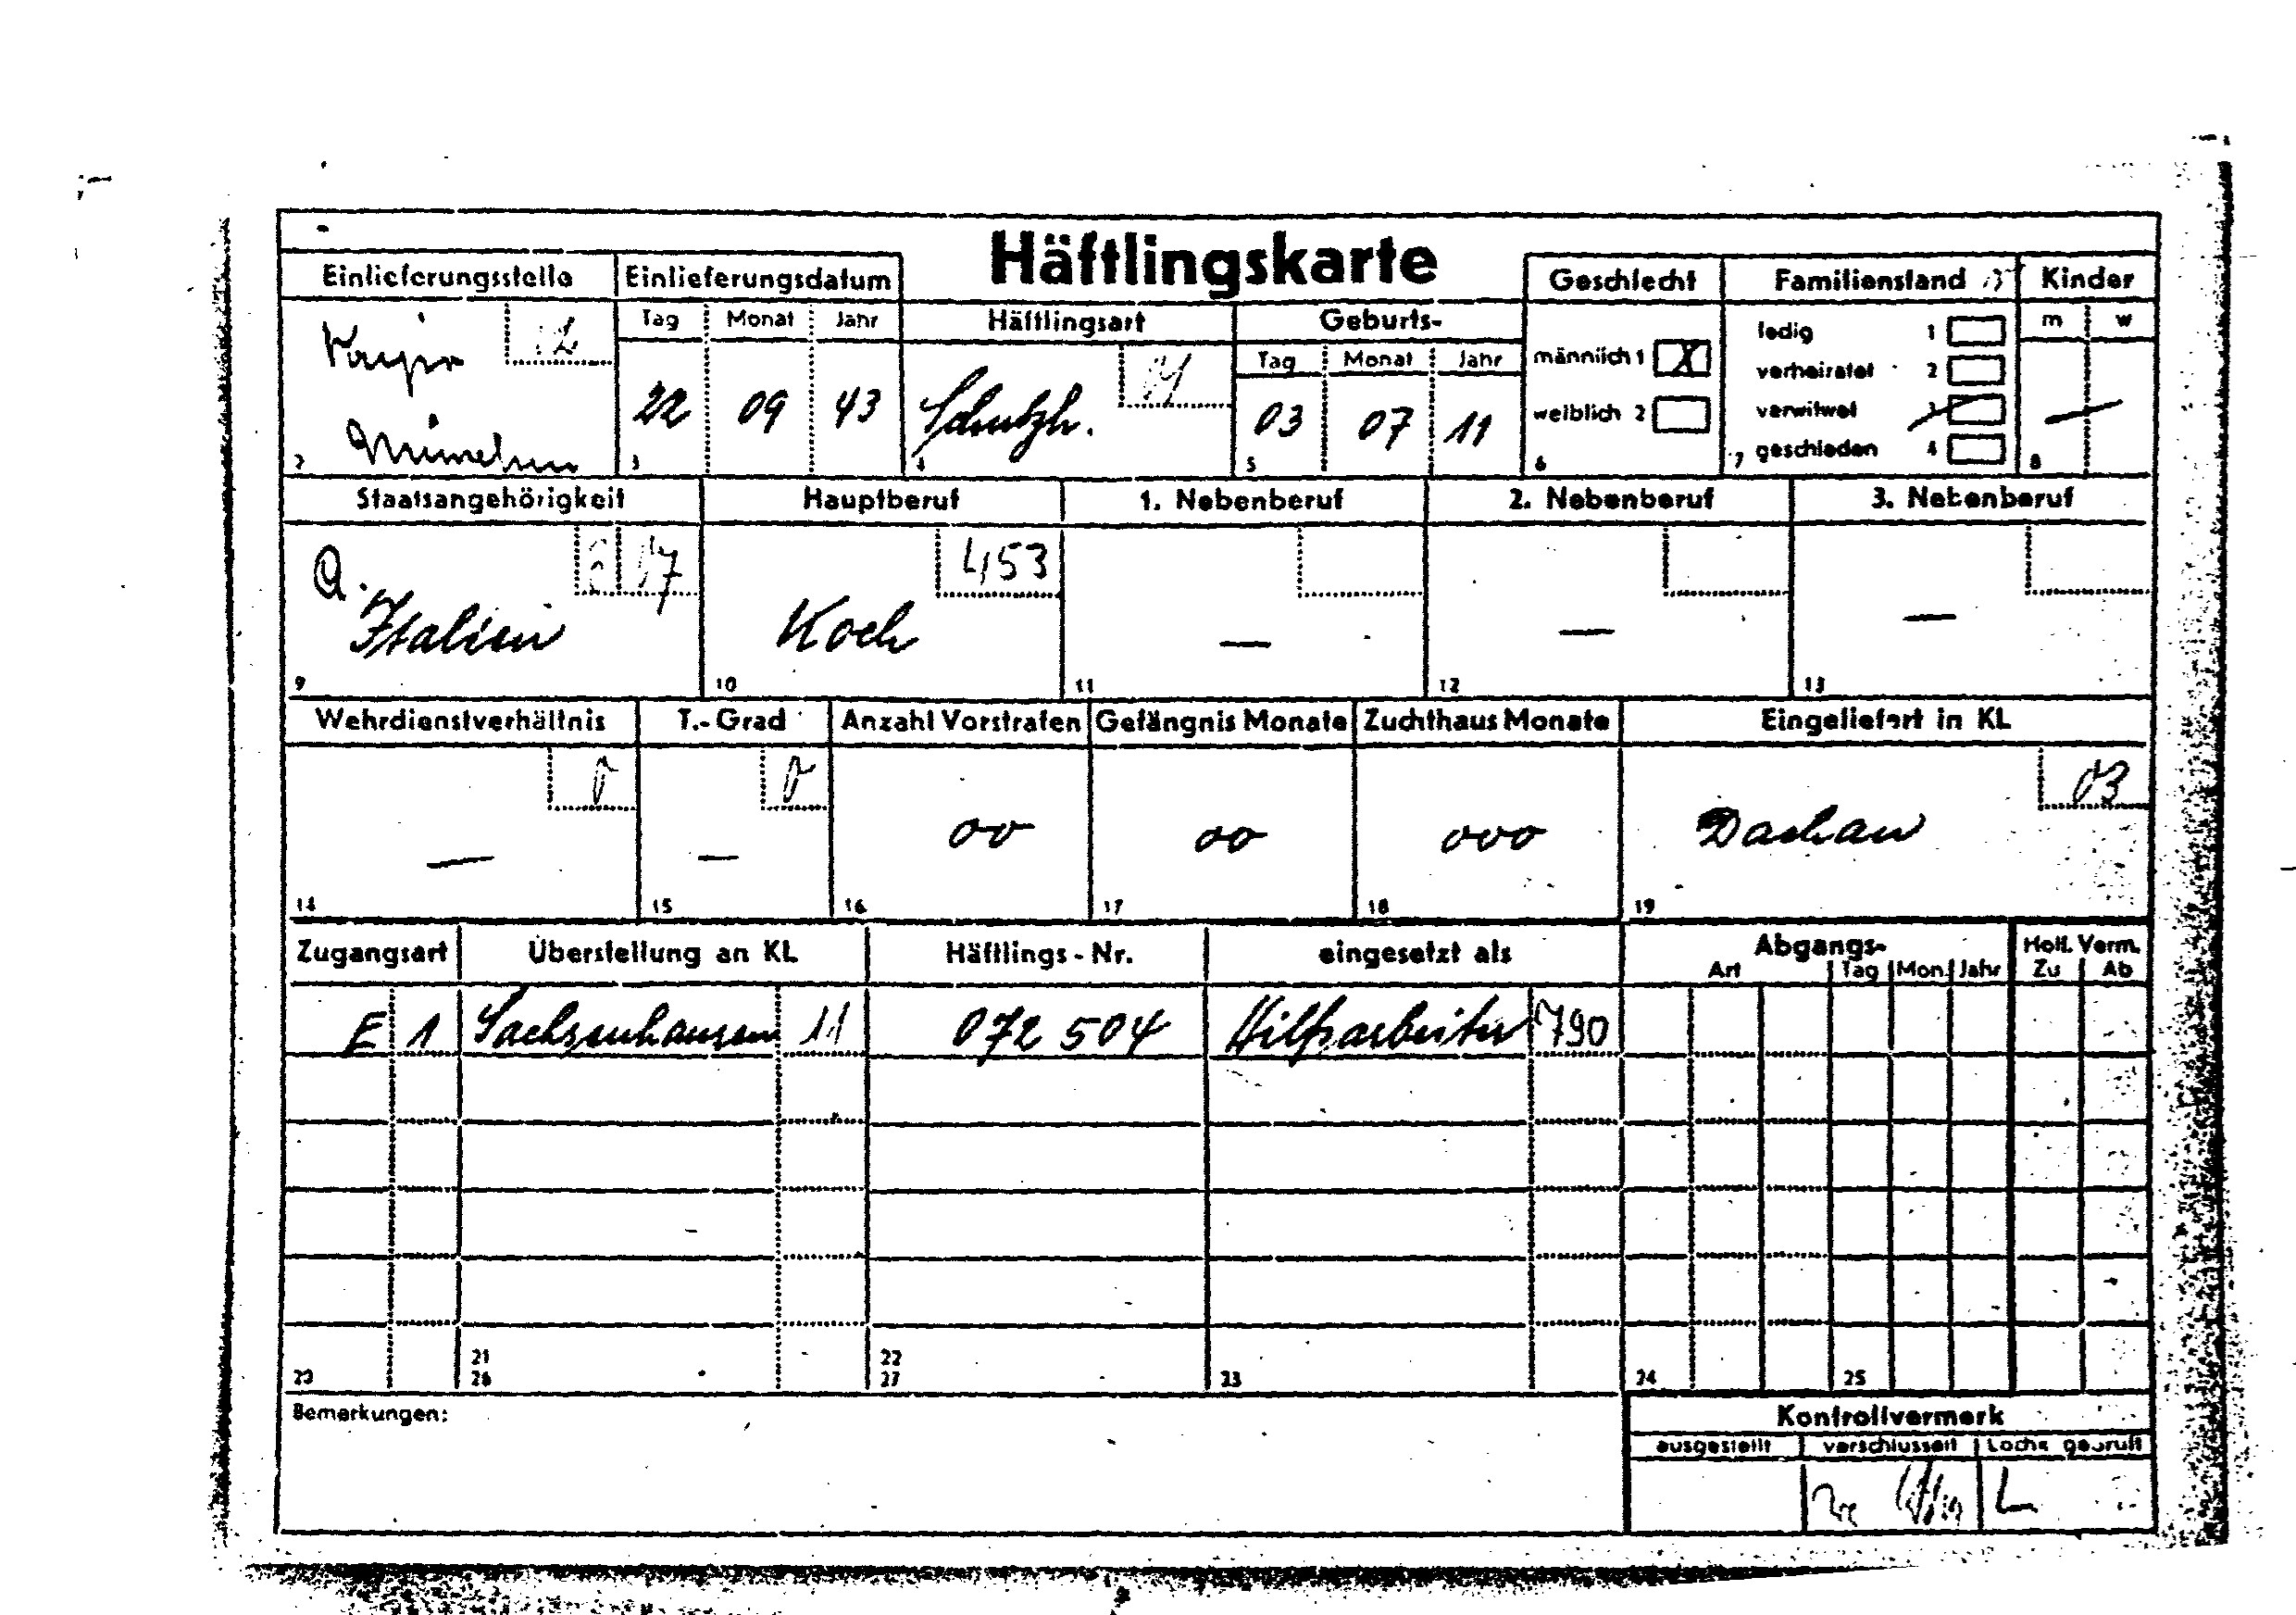 Häftlingskarte
Einlieferungsstelle Einlieferungsdatum Geschlecht Familienstand Kinder
Tag Monat Jahr Häftlingsart Geburts- m w
Tag Monat Jahr
12
München
22 09 43
Schutzh.
03 07 11
männlich 1 X
weiblich 2
ledig 1
verheiratet 2
verwitwet 3
geschieden 4
2 3 4 5 6 7 8
Staatsangehörigkeit Hauptberuf 1. Nebenberuf 2. Nebenberuf 3. Nebenberuf
453
Italien Koch — — —
9 10 11 12 13
Wehrdienstverhältnis T.-Grad Anzahl Vorstrafen Gefängnis Monate Zuchthaus Monate Eingeliefert in KL
0 0 03
— — 00 00 000 Dachau
14 15 16 17 18 19
Zugangsart Überstellung an KL Häftlings-Nr. eingesetzt als Abgangs- Holl. Verm.
Art Tag Mon. Jahr Zu Ab
E 1 Sachsenhausen 11 072 504 Hilfsarbeiter 790
21 22
20 26 27 23 24 25
Bemerkungen: Kontrollvermerk
ausgestellt verschlüsselt Lochk. geprüft
L